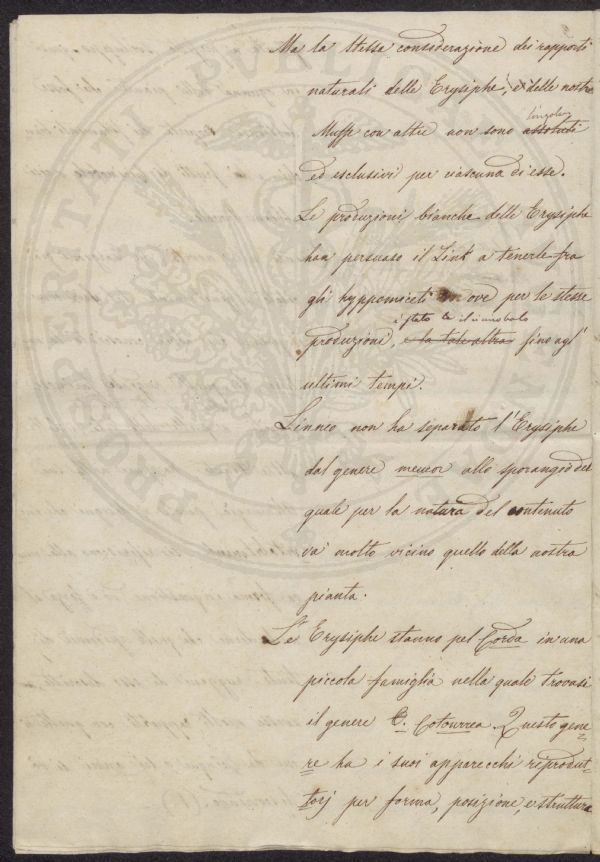 Ma la stessa considerazione dei rapporti
naturali delle Erysiphe, e delle nostre
singolari
Muffe con altre non sono assoluti
ed esclusivi per ciascuna di esse.
Le produzioni bianche delle Erysiphe
han persuaso il Link a tenerle fra
gli hyppomiceti ove per le stesse
è stato
produzioni, e la tale altra fino agl'
ultimi tempi.
Linneo non ha separato l'Erysiphe
dal genere mucor allo sporangio del
quale per la natura del contenuto
va' molto vicino quello della nostra
pianta.
Le Erysiphe stanno pel Corda in una
piccola famiglia nella quale trovasi
il genere Questo gene
re ha i suoi apparecchi reprodut
torj per forma, posizione, e struttura